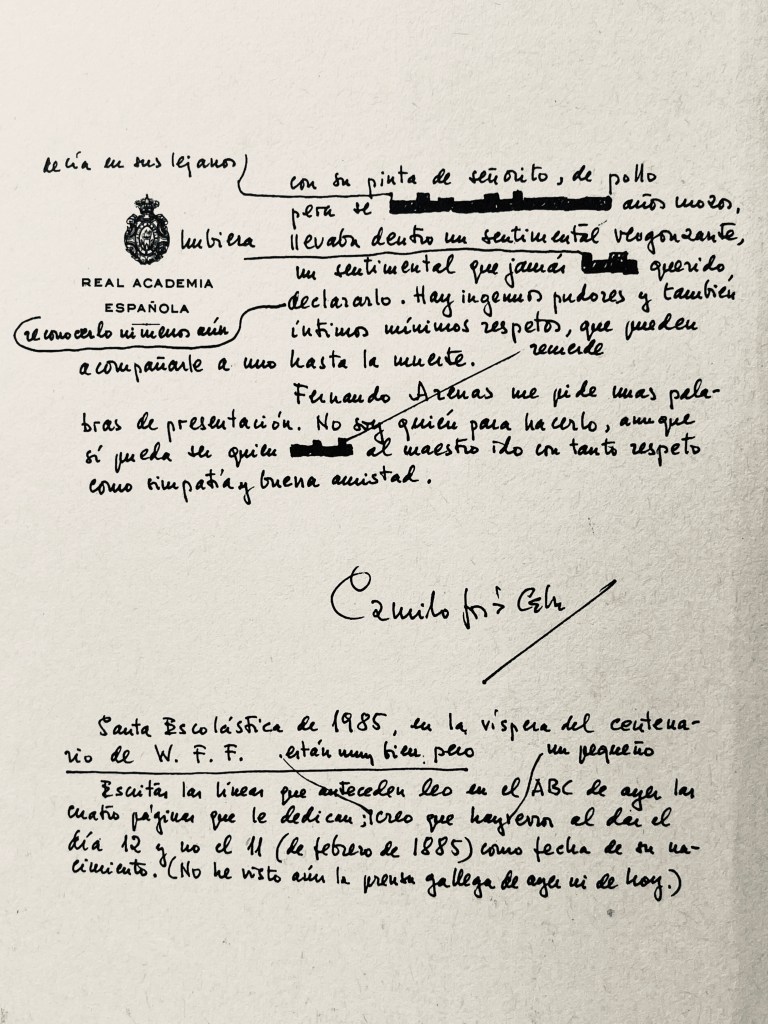 decía en sus lejanos
con su pinta de señorito, de pollo
pera se años mozos,
hubiera llevaba dentro un sentimental vergonzante,
un sentimental que jamás querido
REAL ACADEMIA
ESPAÑOLA
declararlo. Hay ingenuos pudores y también
reconocerlo ni menos aún
íntimos mínimos respetos, que pueden
acompañarle a uno hasta la muerte.
recuerde
Fernando Arenas me pide unas pala-
bras de presentación. No soy quién para hacerlo, aunque
sí pueda ser quien al maestro ido con tanto respeto
como simpatía y buena amistad.
Camilo José Cela
Santa Escolástica de 1985, en la víspera del centena-
rio de W. F. F.
están muy bien, pero
un pequeño
Escritas las líneas que anteceden leo en el ABC de ayer las
cuatro páginas que le dedican; creo que hay error al dar el
día 12 y no el 11 (de febrero de 1885) como fecha de su na-
cimiento. (No he visto aún la prensa gallega de ayer ni de hoy.)